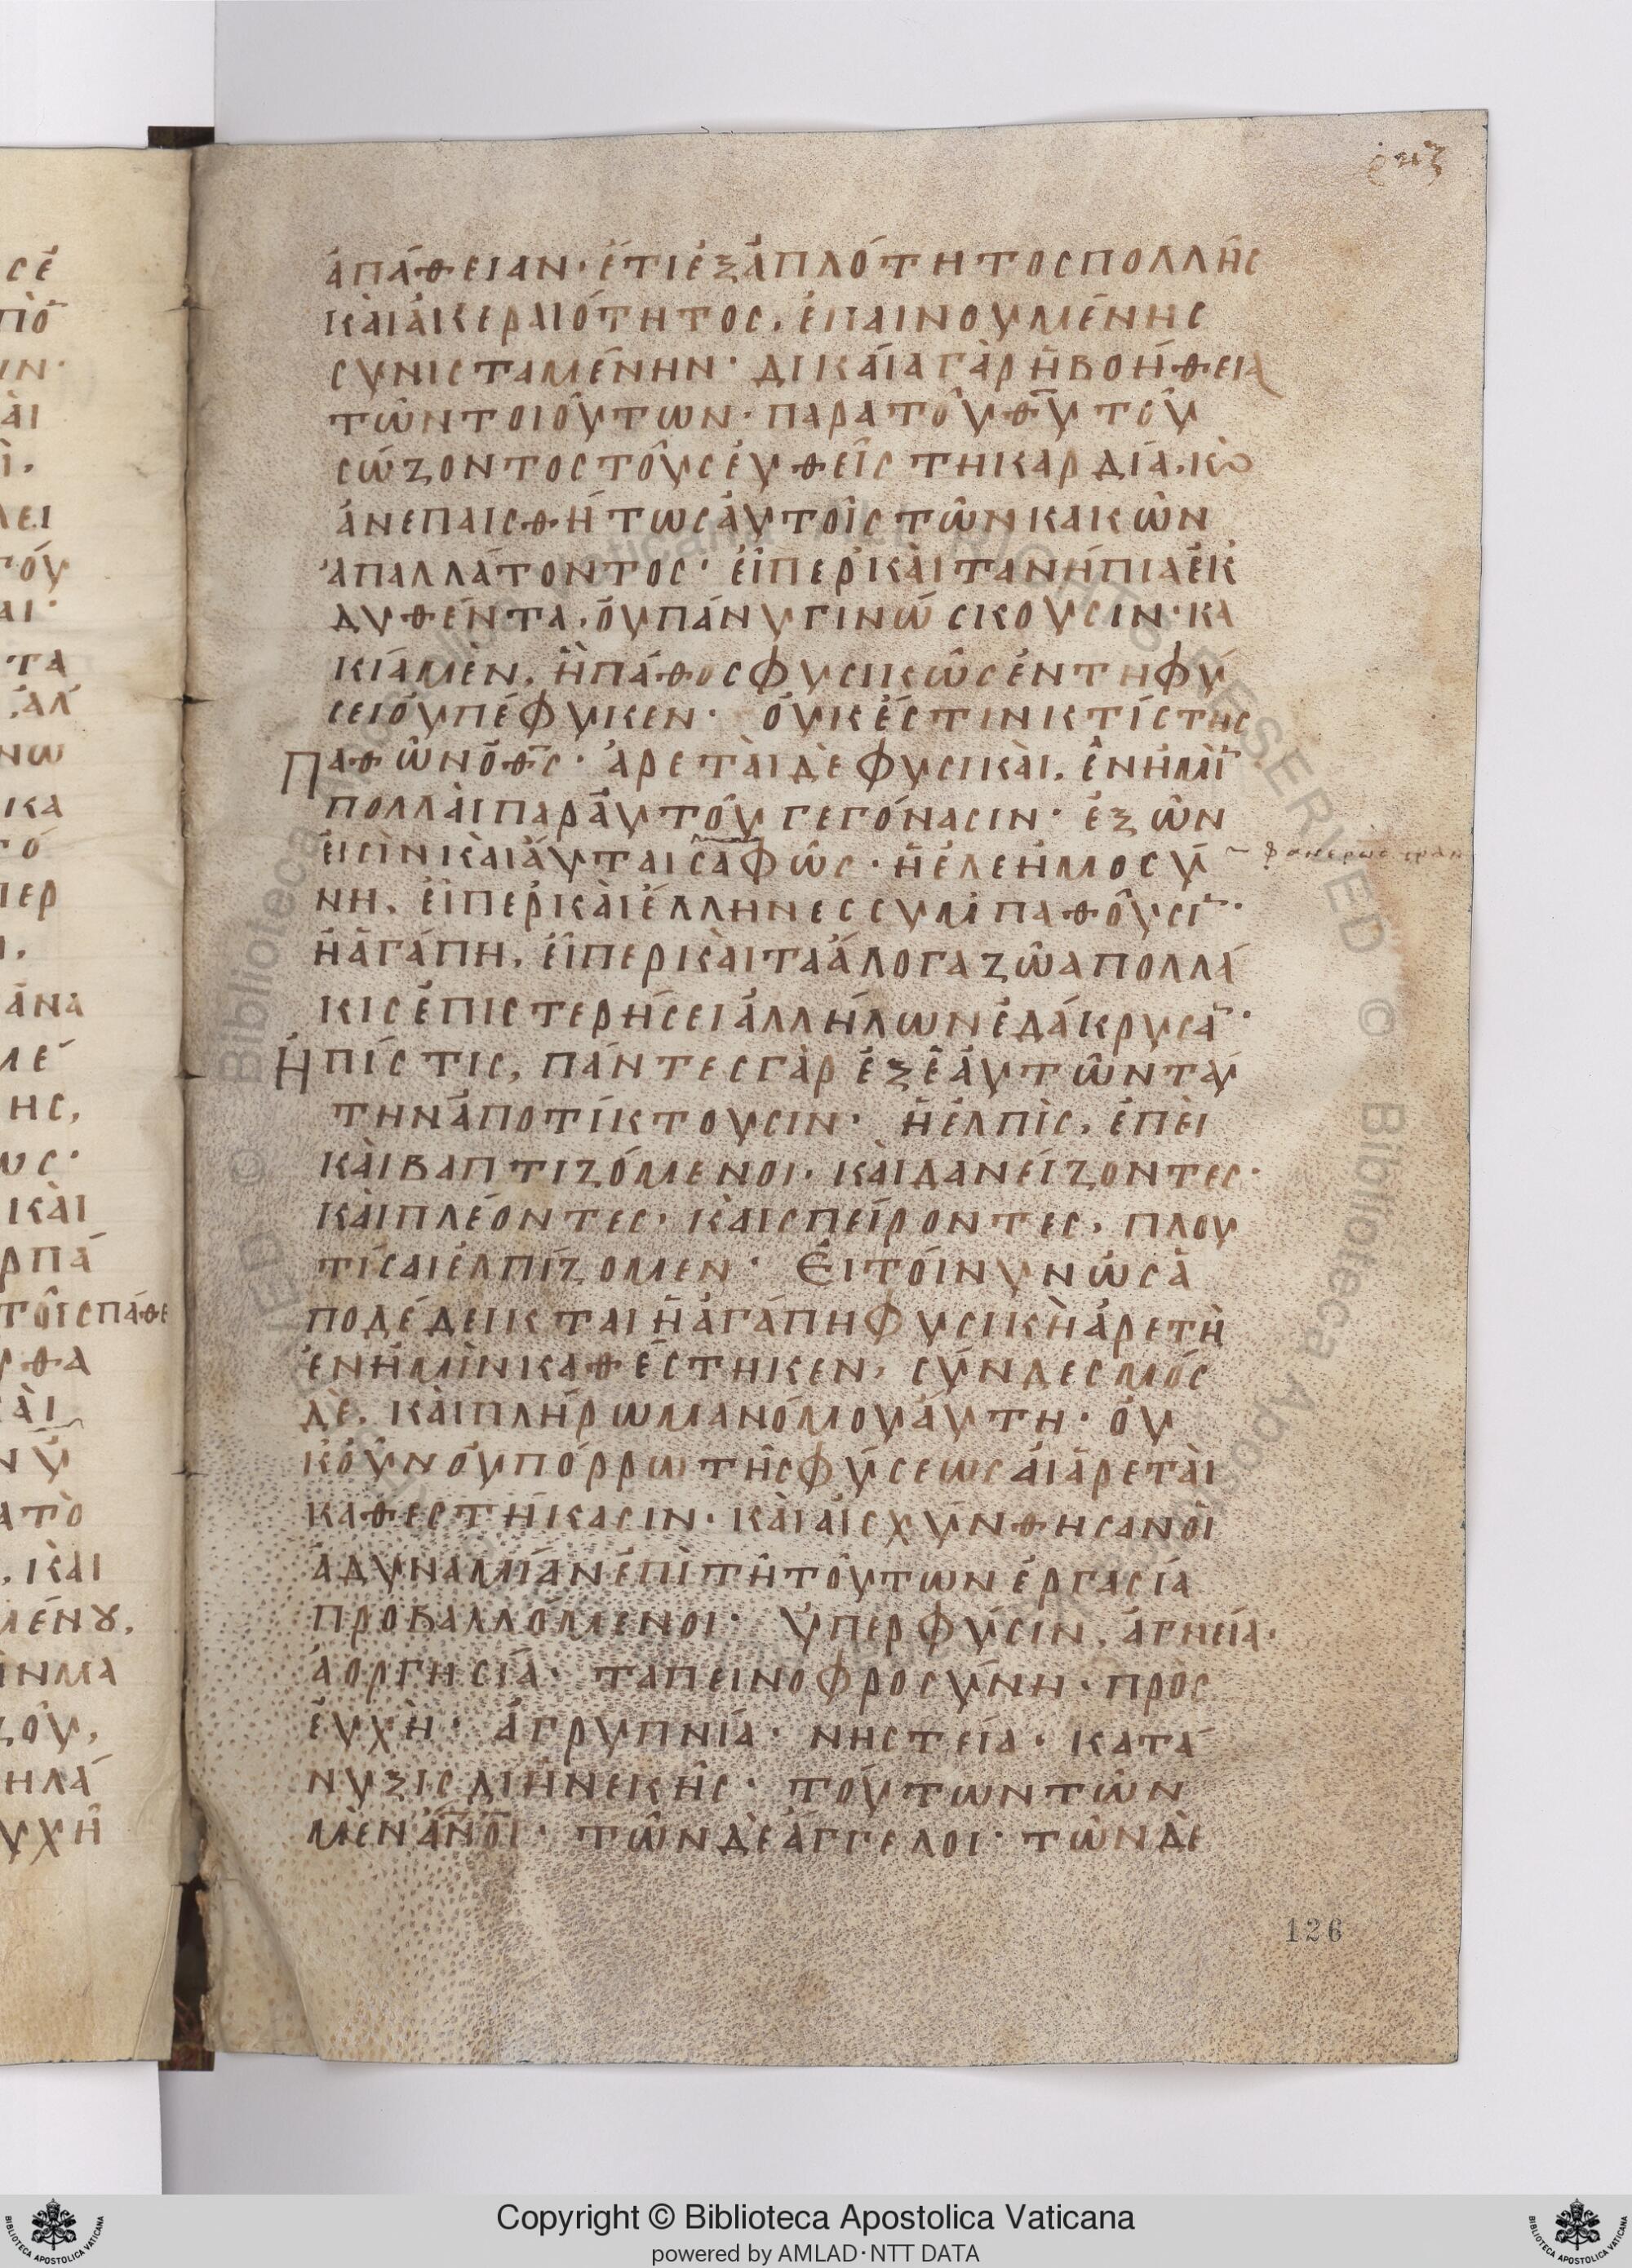 ρκζ
ἀπάθειαν· ἔτι ἐξ ἁπλότητος πολλῆς
καὶ ἀκεραιότητος, ἐπαινουμένης
συνισταμένην· δικαία γὰρ ἡ βοήθεια
τῶν τοιούτων· παρα τοῦ θ̅υ̅ τοῦ
σώζοντος τοὺς εὐθεῖς τη καρδία, κ(αὶ)
ἀνεπαισθήτως αὐτοῖς τῶν κακῶν
ἀπαλλάτοντος· εἴπερ καὶ τα νήπια ἐκ
δυθέντα, οὐ πάνυ γινώσκουσιν· κα
κία μὲν, ἢ πάθος φυσικῶς ἐν τη φύ
σει οὐ πέφυκεν· οὐκ ἔστιν κτίστης
Παθῶν ὁ θ̅ς̅· ἀρεταὶ δὲ φυσικαὶ, ἐν ἡμῖ̅
πολλαὶ παρ αὐτοῦ γεγόνασιν· ἐξ ὧν
εἰσὶν καὶ αὗται σαφῶς· ἡ ἐλεημοσύ
νη, εἴπερ καὶ ἕλληνες συμπαθοῦσι̅·
ἡ ἀγάπη, εἴπερ καὶ τα ἄλογα ζῶα πολλά
κις ἐπι στερήσει ἀλλήλων ἐδάκρυσα̅·
Ἡ πίστις, πάντες γὰρ ἐξ ἑαυτῶν ταύ
την ἀποτίκτουσιν· ἡ ἐλπὶς, ἐπεὶ
καὶ βαπτιζόμενοι· καὶ δανείζοντες·
καὶ πλέοντες, καὶ σπείροντες, πλου
τίσαι ἐλπίζομεν· Εἰ τοίνυν ὡς ἀ
ποδέδεικται ἡ ἀγάπη φυσικὴ ἀρετὴ
ἐν ἡμῖν καθέστηκεν, σύνδεσμός
δὲ, καὶ πλήρωμα νόμου αὕτη· οὐ
κοῦν οὐ πόρρω τῆς φύσεως αἱ ἀρεταὶ
καθεστήκασιν· καὶ αἰσχύνθησαν οἱ
ἀδυναμίαν ἐπὶ τῆ τούτων ἐργασία
προβαλλόμενοι· Ὑπερ φύσιν, ἁγνεία·
ἀοργησία· ταπεινοφροσύνη· προς
ευχὴ· ἀγρυπνία· νηστεία· κατά
νυξις διηνεκὴς· τούτων τῶν
μὲν ἄ̅ν̅ο̅ι̅· τῶν δὲ ἄγγελοι· τῶν δὲ
126
Biblioteca Apostolica Vaticana ALL RIGHTS RESERVED ©
Copyright © Biblioteca Apostolica Vaticana
powered by AMLAD·NTT DATA
BIBLIOTECA APOSTOLICA VATICANA
BIBLIOTECA APOSTOLICA VATICANA